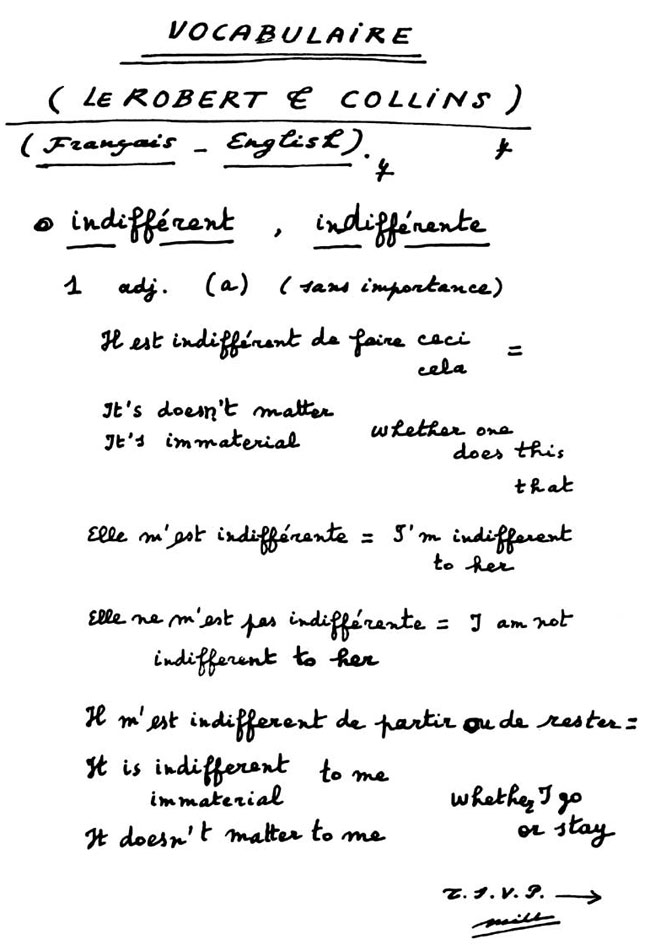 VOCABULAIRE
( LE ROBERT & COLLINS )
( Français - English ).
indifférent , indifférente
1 adj. (a) ( sans importance )
Il est indifférent de faire ceci =
cela
It's doesn't matter
It's immaterial whether one
does this
that
Elle m'est indifférente = I'm indifferent
to her
Elle ne m'est pas indifférente = I am not
indifferent to her
Il m'est indifferent de partir ou de rester =
It is indifferent to me
immaterial whether I go
It doesn't matter to me or stay
T.S.V.P. →